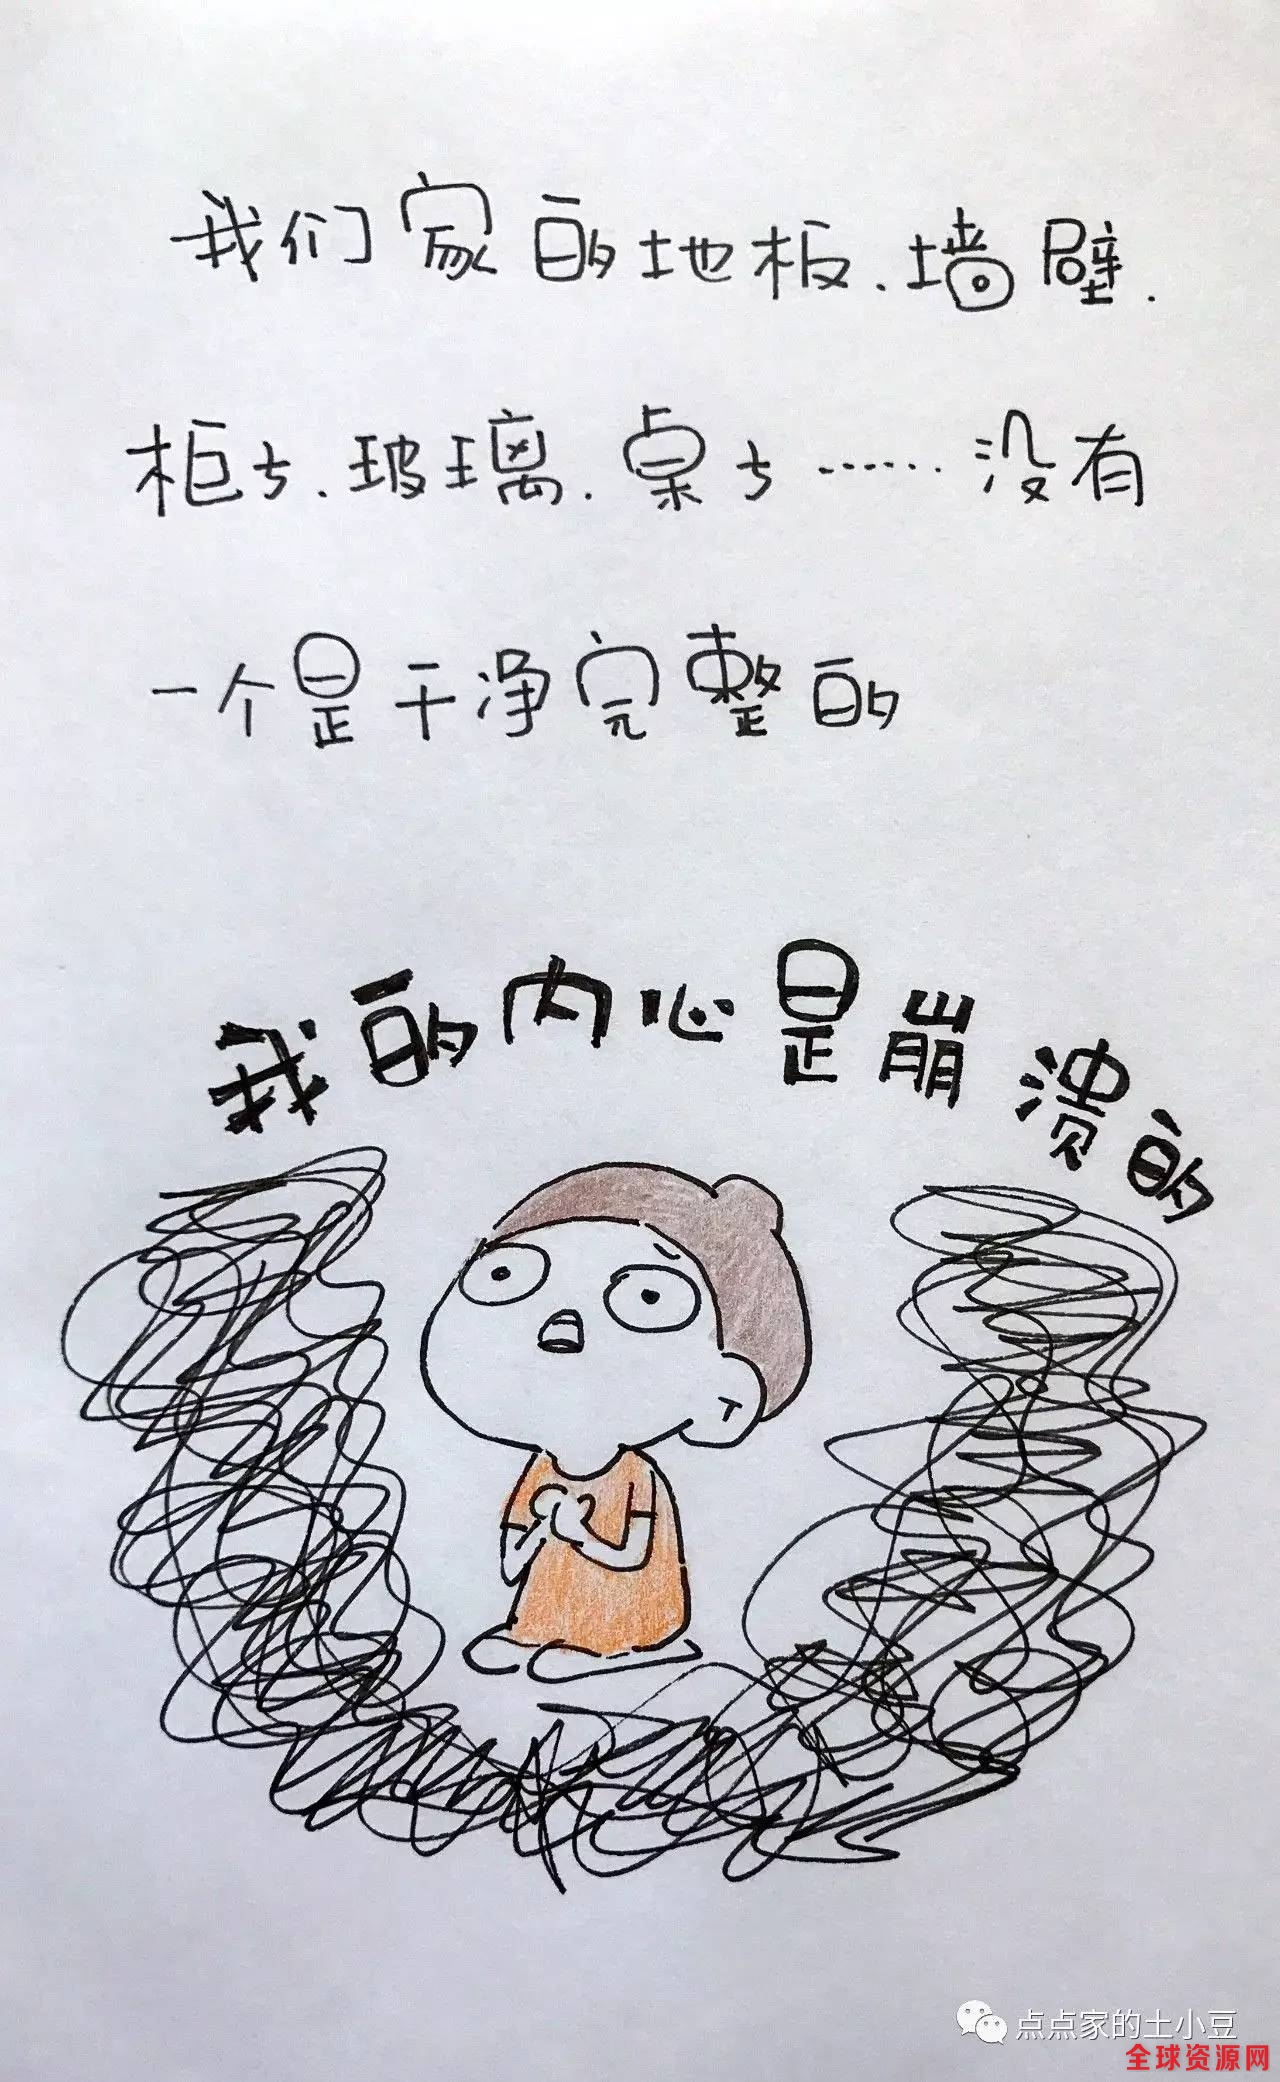 我们家的地板、墙壁、
柜子、玻璃、桌子……没有
一个是干净完整的
我的内心是崩溃的
点点家的土小豆
全球资源网